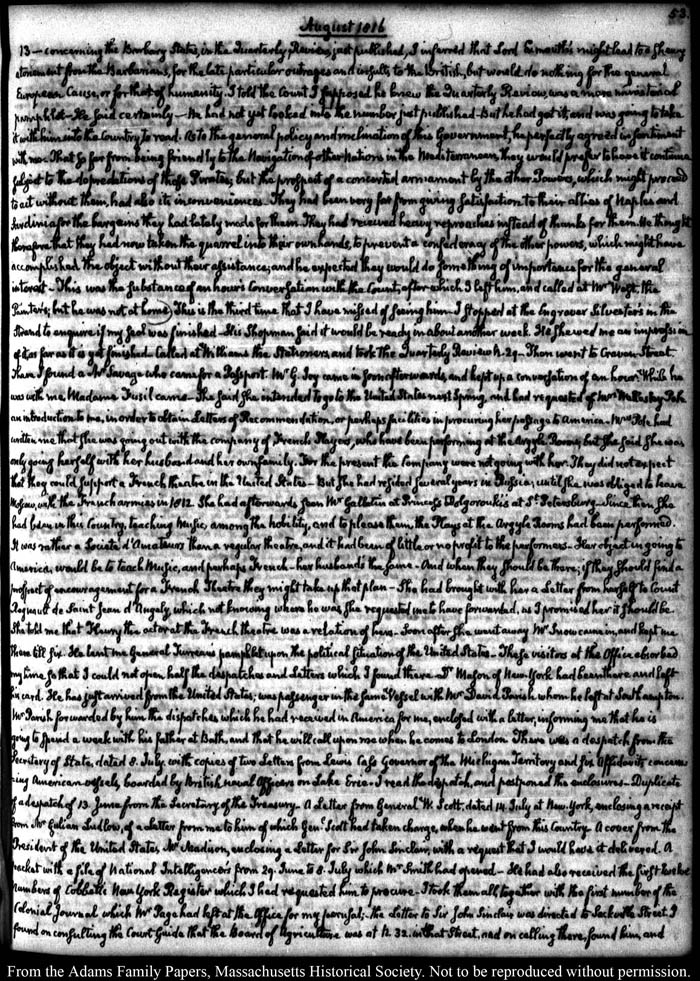 53
August 1816
13 — concerning the Barbary States, in the Quarterly Review, just published, I inferred that Lord Exmouth's might lead to a
atonement from the Barbarians, for the late particular outrages and insults to the British, but would do nothing for the general
European Cause, or for that of humanity. I told the Count I supposed he knew the Quarterly Review, was a more ministerial
pamphlet — He said certainly — He had not yet looked into the number just published — But he had got it, and was going to take
it with him into the Country to read. As to the general policy and inclination of this Government, he perfectly agreed in sentiment
with me. That so far from being friendly to the Navigation of other Nations in the Mediterranean, they would prefer to have it continue
subject to the depredations of these Pirates; but the prospect of a concerted armament by the other Powers, which might proceed
to act without them, had also its inconveniences. They had been very far from giving satisfaction to their allies of Naples and
Sardinia for the bargains they had lately made for them. They had received heavy reproaches instead of thanks for them. He thinks
therefore that they had now taken the quarrel into their own hands, to prevent a confederacy of the other powers, which might have
accomplished the object without their assistance; and he expected they would do something of importance for the general
interest — This was the substance of an hour's Conversation with the Count, after which I left him, and called at Mr West, the
Painter's; but he was not at home. This is the third time that I have missed of seeing him — I stopped at the Engraver Silvester's in the
Strand to enquire if my Seal was finished — His Shopman said it would be ready in about another week. He shewed me an impression
of it as far as it is yet finished. Called at Williams the Stationer's, and took the Quarterly Review N. 29 — Then went to Craven Street.
There I found a Mr Savage who came for a Passport. Mr G. Joy came in soon afterwards, and kept up a conversation of an hour. While he
was with me, Madame Fusil came — She said She intended to go to the United States next Spring, and had requested of Mrs Wellesley Pole
an introduction to me, in order to obtain Letters of Recommendation, or perhaps facilities in procuring her passage to America. Mrs Pole had
written me that she was going out with the company of French Players, who have been performing at the Argyle Rooms, but she said She was
only going herself with her husband and her own family. For the present the Company were not going with her. They did not expect
that they could support a French theatre in the United States — But She had resided several years in Russia, until she was obliged to leave
Moscow, with the French armies in 1812. She had afterwards seen Mr Gallatin at Princess Dolgorouki's at St. Petersburg — Since then She
had been in this Country, teaching Music, among the nobility, and to please them, the Plays at the Argyle Rooms had been performed.
It was rather a Société d'Amateurs than a regular theatre, and it had been of little or no profit to the performers — Her object in going to
America, would be to teach Music, and perhaps French — her husbands the same — And when they should be there, if they should find a
prospect of encouragement for a French Theatre they might take up that plan — She had brought with her a Letter from herself to Count
Regnault de Saint Jean d'Angely, which not knowing where he was She requested me to have forwarded, as I promised her it should be.
She told me that Fleury the actor at the French theatre was a relation of hers — Soon after She went away Mr Snow came in, and kept me
there till six. He lent me General Turreau's pamphlet upon the political situation of the United States — These visitors at the Office absorbed
my time, so that I could not open, half the despatches and Letters which I found there — Dr Mason of New-York had been there and left
his card. He has just arrived from the United States; was passenger in the same Vessel with Mr David Parish whom he left at Southampton.
Mr Parish forwarded by him the dispatches which he had received in America for me, enclosed with a letter, informing me that he is
going to spend a week with his father at Bath, and that he will call upon me when he comes to London. There was a despatch from the
Secretary of State, dated 8. July, with copies of two Letters from Lewis Cass Governor of the Michigan Territory and six Affidavits concern-
ing American vessels, boarded by British naval Officers on Lake Erie — I read the dispatch, and postponed the enclosures — Duplicate
of a despatch of 13 June from the Secretary of the Treasury — A Letter from General W. Scott, dated 14 July at New-York, enclosing a receipt
from Mr Gulian Ludlow, of a Letter from me to him of which Genl. Scott had taken charge, when he went from this Country. A cover from the
President of the United States, Mr Madison, enclosing a Letter for Sir John Sinclair, with a request that I would have it delivered. A
packet with a file of National Intelligencers from 29. June to 8. July which Mr Smith had opened — He had also received the first twelve
numbers of Cobbett's New York Register which I had requested him to procure — I took them all, together with the first number of the
Colonial Journal which Mr Page had left at the Office for my perusal; the Letter to Sir John Sinclair was directed to Sackville Street. I
found on consulting the Court Guide that the Board of Agriculture was at N. 32. in that Street, and on calling there, found him, and
From the Adams Family Papers, Massachusetts Historical Society. Not to be reproduced without permission.